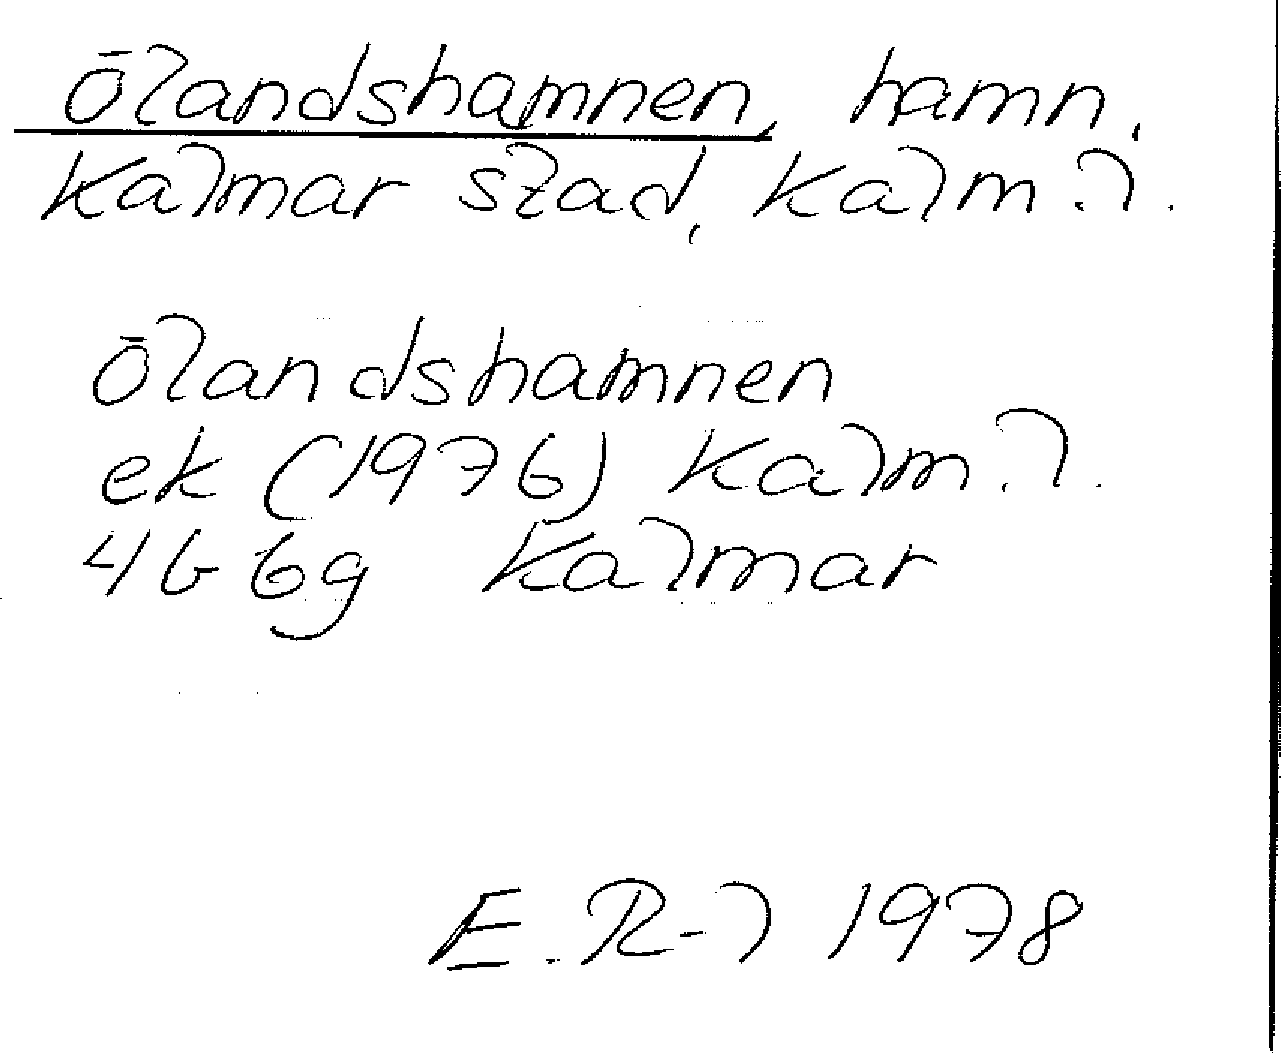 Ölandshamnen, hamn,
Kalmar stad, Kalm. l.
Ölandshamnen
ek (1976) Kalm. l.
4G 6g Kalmar
E. R-l 1978